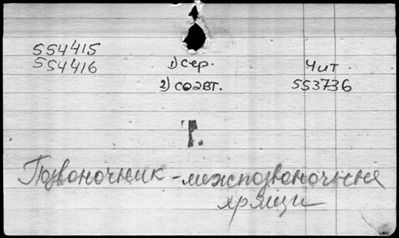 554415
554416 1) сер. Чит
2) соавт. 553736
Т.
Позвоночник - межпозвоночные
хрящи